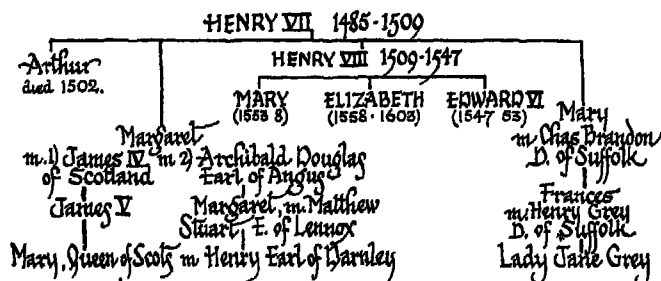 HENRY VII 1485-1509
Arthur
died 1502.
HENRY VIII 1509-1547
MARY ELIZABETH EDWARD VI
(1553 8) (1558·1603) (1547 53)
Margaret
m. 1) James IV m 2) Archibald Douglas
of Scotland Earl of Angus
James V Margaret, m. Matthew
Stuart, E. of Lennox
Mary, Queen of Scots m Henry Earl of Darnley
Mary
m Chas Brandon
D. of Suffolk
Frances
m. Henry Grey
D. of Suffolk
Lady Jane Grey